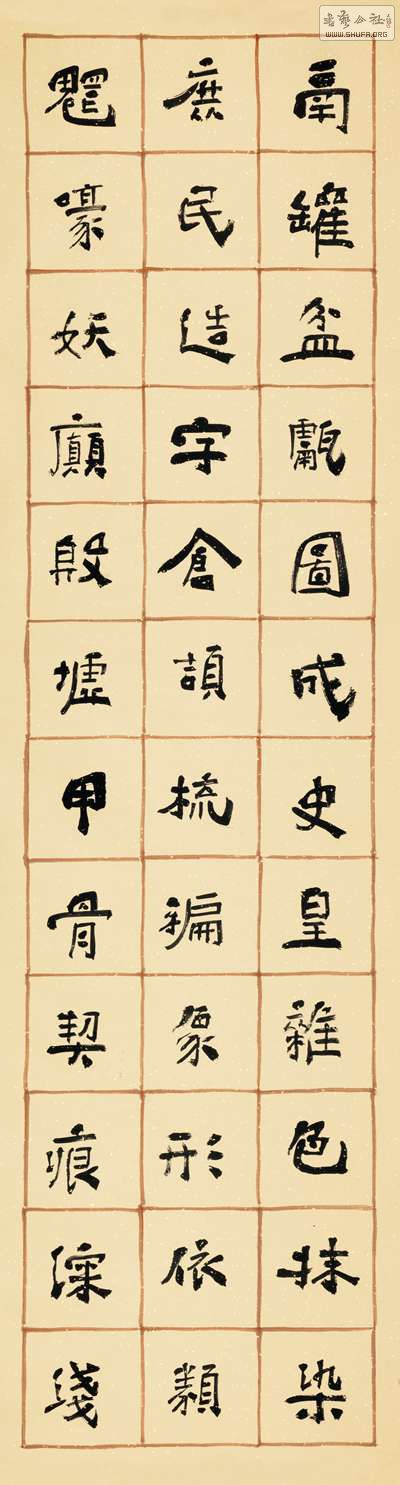 書藝公社
WWW.SHUFA.ORG
鬲罐盆甗圖成史皇雜色抹染
庶民造字倉頡梳編象形依類
嚎妖癲殷墟甲骨契痕深淺